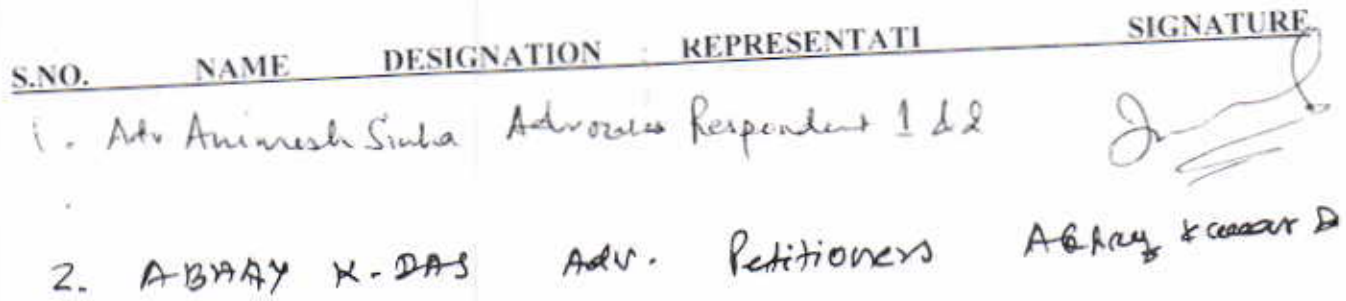 S.NO. NAME DESIGNATION REPRESENTATI SIGNATURE
1. Adv Animesh Sinha Advocate Respondent 1 & 2
2. ABHAY K. DAS Adv. Petitioners Abhay Kumar D